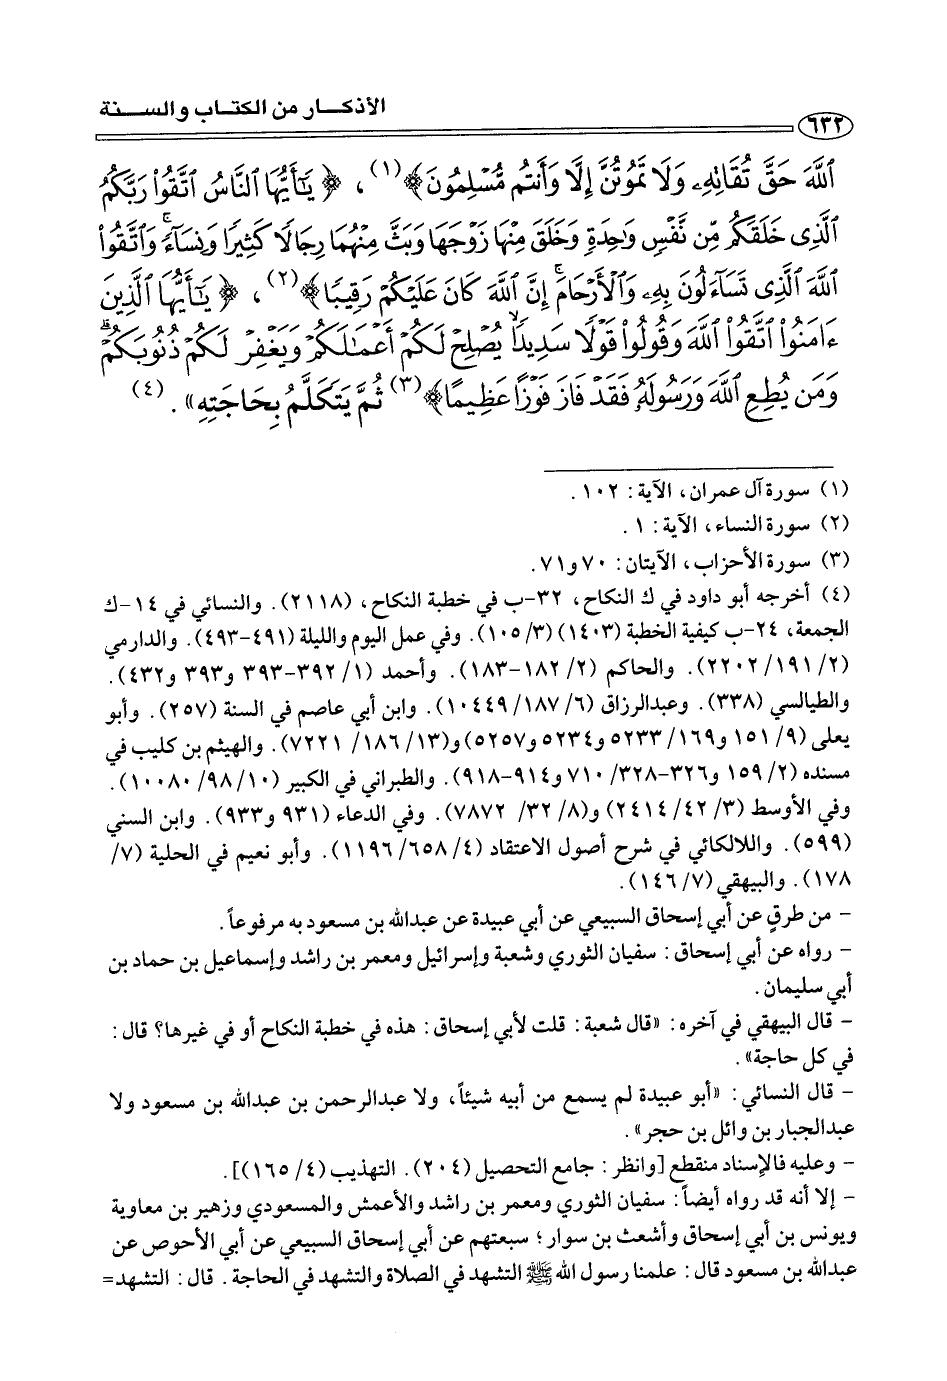 الأذكار من الكتاب والسنة
٦٣٢
ٱللَّهَ حَقَّ تُقَاتِهِۦ وَلَا تَمُوتُنَّ إِلَّا وَأَنتُم مُّسْلِمُونَ﴾(١)، ﴿يَٰٓأَيُّهَا ٱلنَّاسُ ٱتَّقُوا۟ رَبَّكُمُ
ٱلَّذِى خَلَقَكُم مِّن نَّفْسٍ وَٰحِدَةٍ وَخَلَقَ مِنْهَا زَوْجَهَا وَبَثَّ مِنْهُمَا رِجَالًا كَثِيرًا وَنِسَآءً ۚ وَٱتَّقُوا۟
ٱللَّهَ ٱلَّذِى تَسَآءَلُونَ بِهِۦ وَٱلْأَرْحَامَ ۚ إِنَّ ٱللَّهَ كَانَ عَلَيْكُمْ رَقِيبًا﴾(٢)، ﴿يَٰٓأَيُّهَا ٱلَّذِينَ
ءَامَنُوا۟ ٱتَّقُوا۟ ٱللَّهَ وَقُولُوا۟ قَوْلًا سَدِيدًا ۙ يُصْلِحْ لَكُمْ أَعْمَٰلَكُمْ وَيَغْفِرْ لَكُمْ ذُنُوبَكُمْ ۗ
وَمَن يُطِعِ ٱللَّهَ وَرَسُولَهُۥ فَقَدْ فَازَ فَوْزًا عَظِيمًا﴾(٣) ثُمَّ يَتَكَلَّمُ بِحَاجَتِهِ». (٤)
(١) سورة آل عمران، الآية: ١٠٢.
(٢) سورة النساء، الآية: ١.
(٣) سورة الأحزاب، الآيتان: ٧٠ و٧١.
(٤) أخرجه أبو داود في ك النكاح، ٣٢-ب في خطبة النكاح، (٢١١٨). والنسائي في ١٤-ك
الجمعة، ٢٤-ب كيفية الخطبة (١٤٠٣)(٣/ ١٠٥). وفي عمل اليوم والليلة (٤٩١-٤٩٣). والدارمي
(٢/ ١٩١/ ٢٢٠٢). والحاكم (٢/ ١٨٢-١٨٣). وأحمد (١/ ٣٩٢-٣٩٣ و٣٩٣ و٤٣٢).
والطيالسي (٣٣٨). وعبدالرزاق (٦/ ١٨٧/ ١٠٤٤٩). وابن أبي عاصم في السنة (٢٥٧). وأبو
يعلى (٩/ ١٥١ و١٦٩/ ٥٢٣٣ و٥٢٣٤ و٥٢٥٧) و(١٣/ ١٨٦/ ٧٢٢١). والهيثم بن كليب في
مسنده (٢/ ١٥٩ و٣٢٦-٣٢٨/ ٧١٠ و٩١٤-٩١٨). والطبراني في الكبير (١٠/ ٩٨/ ١٠٠٨٠).
وفي الأوسط (٣/ ٤٢/ ٢٤١٤) و(٨/ ٣٢/ ٧٨٧٢). وفي الدعاء (٩٣١ و٩٣٣). وابن السني
(٥٩٩). واللالكائي في شرح أصول الاعتقاد (٤/ ٦٥٨/ ١١٩٦). وأبو نعيم في الحلية (٧/
١٧٨). والبيهقي (٧/ ١٤٦).
- من طرقٍ عن أبي إسحاق السبيعي عن أبي عبيدة عن عبدالله بن مسعود به مرفوعاً.
- رواه عن أبي إسحاق: سفيان الثوري وشعبة وإسرائيل ومعمر بن راشد وإسماعيل بن حماد بن
أبي سليمان.
- قال البيهقي في آخره: «قال شعبة: قلت لأبي إسحاق: هذه في خطبة النكاح أو في غيرها؟ قال:
في كل حاجة».
- قال النسائي: «أبو عبيدة لم يسمع من أبيه شيئاً، ولا عبدالرحمن بن عبدالله بن مسعود ولا
عبدالجبار بن وائل بن حجر».
- وعليه فالإسناد منقطع [وانظر: جامع التحصيل (٢٠٤). التهذيب (٤/ ١٦٥)].
- إلا أنه قد رواه أيضاً: سفيان الثوري ومعمر بن راشد والأعمش والمسعودي وزهير بن معاوية
ويونس بن أبي إسحاق وأشعث بن سوار؛ سبعتهم عن أبي إسحاق السبيعي عن أبي الأحوص عن
عبدالله بن مسعود قال: علمنا رسول الله ﷺ التشهد في الصلاة والتشهد في الحاجة. قال: التشهد=